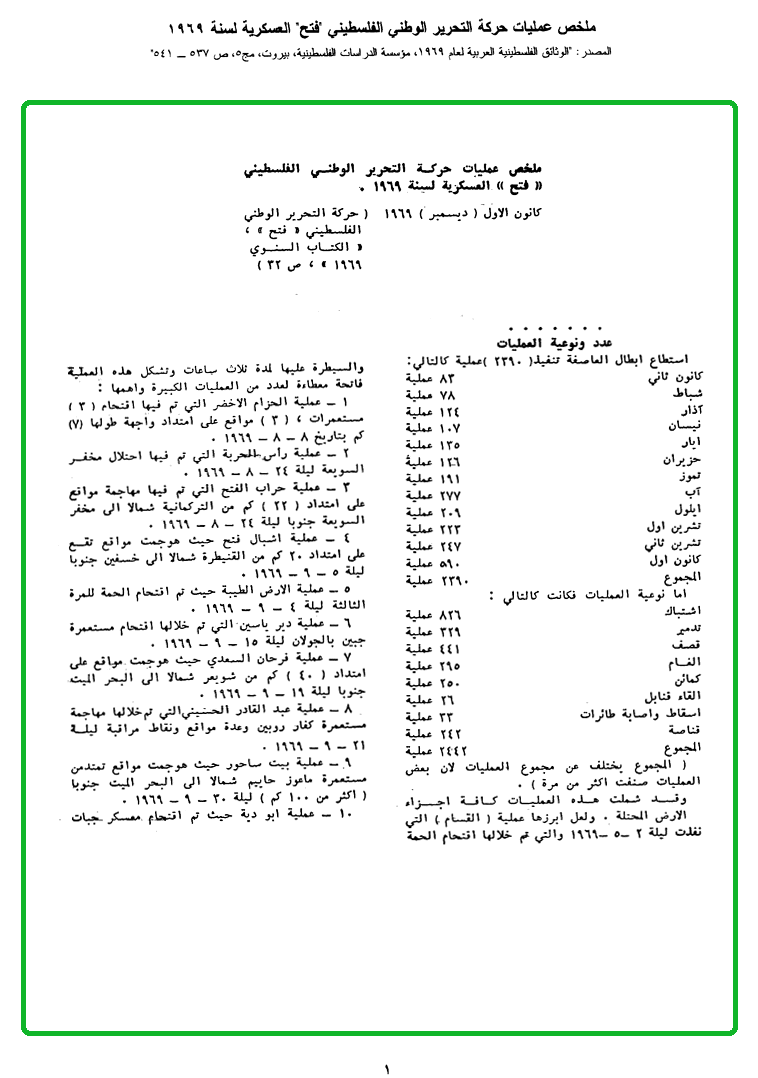 ملخص عمليات حركة التحرير الوطني الفلسطيني "فتح" العسكرية لسنة ١٩٦٩
المصدر: "الوثائق الفلسطينية العربية لعام ١٩٦٩، مؤسسة الدراسات الفلسطينية، بيروت، مج٥، ص ٥٣٧ – ٥٤١"
ملخص عمليات حركة التحرير الوطني الفلسطيني
« فتح » العسكرية لسنة ١٩٦٩ .
كانون الاول ( ديسمبر ) ١٩٦٩
( حركة التحرير الوطني
الفلسطيني « فتح » ،
« الكتاب السنوي
١٩٦٩ » ، ص ٣٢ )
. . . . . . .
عدد ونوعية العمليات
استطاع ابطال العاصفة تنفيذ ( ٢٣٩٠ ) عملية كالتالي:
كانون ثاني ٨٣ عملية
شباط ٧٨ عملية
آذار ١٢٤ عملية
نيسان ١٠٧ عملية
ايار ١٣٥ عملية
حزيران ١٢٦ عملية
تموز ١٩١ عملية
آب ٢٧٧ عملية
ايلول ٢٠٩ عملية
تشرين اول ٢٢٣ عملية
تشرين ثاني ٢٤٧ عملية
كانون اول ٥٩٠ عملية
المجموع ٢٣٩٠ عملية
اما نوعية العمليات فكانت كالتالي :
اشتباك ٨٢٦ عملية
تدمير ٣٢٩ عملية
قصف ٤٤١ عملية
الغام ٢٩٥ عملية
كمائن ٢٥٠ عملية
القاء قنابل ٢٦ عملية
اسقاط واصابة طائرات ٣٣ عملية
قناصة ٢٤٢ عملية
المجموع ٢٤٤٢ عملية
( المجموع يختلف عن مجموع العمليات لان بعض
العمليات صنفت اكثر من مرة ) .
وقد شملت هذه العمليات كافة اجزاء
الارض المحتلة . ولعل ابرزها عملية ( القسام ) التي
نفذت ليلة ٢ –٥ –١٩٦٩ والتي تم خلالها اقتحام الحمة
والسيطرة عليها لمدة ثلاث ساعات وتشكل هذه العملية
فاتحة معطاءة لعدد من العمليات الكبيرة واهمها :
١ – عملية الحزام الاخضر التي تم فيها اقتحام ( ٣ )
مستعمرات ، ( ٣ ) مواقع على امتداد واجهة طولها (٧)
كم بتاريخ ٨ – ٨ – ١٩٦٩ .
٢ – عملية رأس الحربة التي تم فيها احتلال مخفر
السويعة ليلة ٢٤ – ٨ – ١٩٦٩ .
٣ – عملية حراب الفتح التي تم فيها مهاجمة مواقع
على امتداد ( ٢٢ ) كم من التركمانية شمالا الى مخفر
السويعة جنوبا ليلة ٢٤ – ٨ – ١٩٦٩ .
٤ – عملية اشبال فتح حيث هوجمت مواقع تقع
على امتداد ٢٠ كم من القنيطرة شمالا الى خسفين جنوبا
ليلة ٥ – ٩ – ١٩٦٩ .
٥ – عملية الارض الطيبة حيث تم اقتحام الحمة للمرة
الثالثة ليلة ٤ – ٩ – ١٩٦٩ .
٦ – عملية دير ياسين التي تم خلالها اقتحام مستعمرة
جبين بالجولان ليلة ١٥ – ٩ – ١٩٦٩ .
٧ – عملية فرحان السعدي حيث هوجمت مواقع على
امتداد ( ٤٠ ) كم من شويعر شمالا الى البحر الميت
جنوبا ليلة ١٩ – ٩ – ١٩٦٩ .
٨ – عملية عبد القادر الحسيني التي تم خلالها مهاجمة
مستعمرة كفار روبين وعدة مواقع ونقاط مراقبة ليلة
٢١ – ٩ – ١٩٦٩ .
٩ – عملية بيت ساحور حيث هوجمت مواقع تمتد من
مستعمرة ماعوز حاييم شمالا الى البحر الميت جنوبا
( اكثر من ١٠٠ كم ) ليلة ٣٠ – ٩ – ١٩٦٩ .
١٠ – عملية ابو دية حيث تم اقتحام معسكر جبات
١